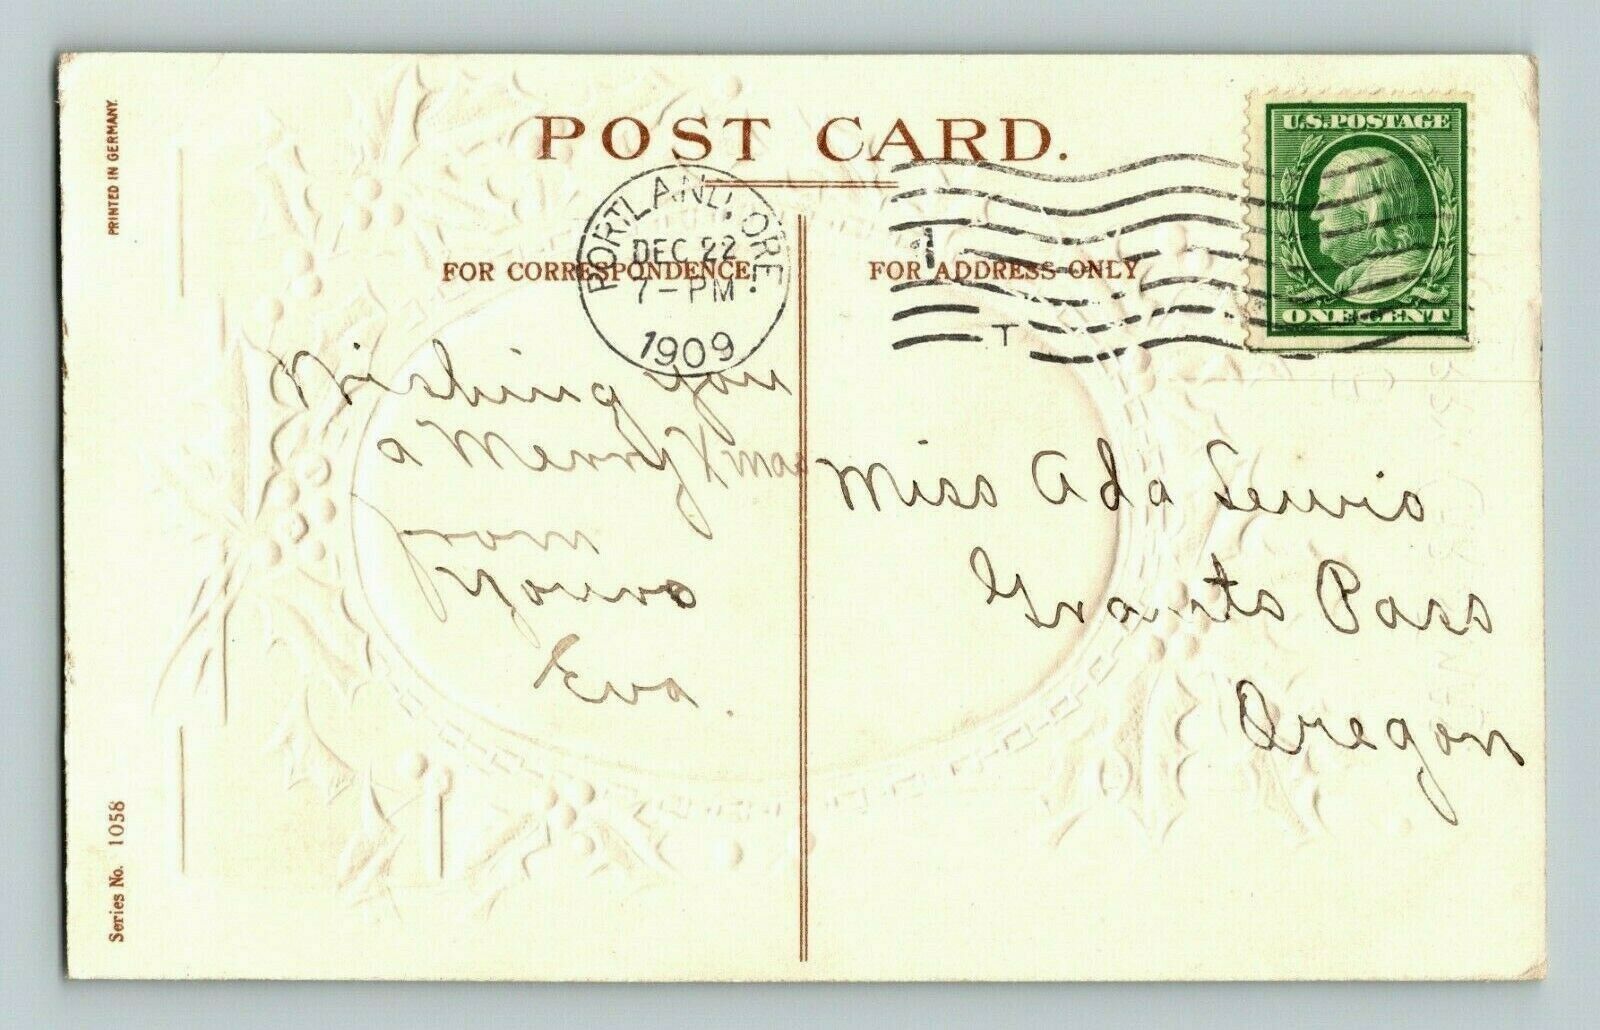 PRINTED IN GERMANY.
POST CARD.
U.S. POSTAGE
ONE CENT
PORTLAND, ORE.
DEC 22
7-PM
1909
FOR CORRESPONDENCE.
FOR ADDRESS ONLY
Wishing you
a Merry Xmas
from
Yours
Eva.
Miss Ada Lewis
Grants Pass
Oregon
Series No. 1058